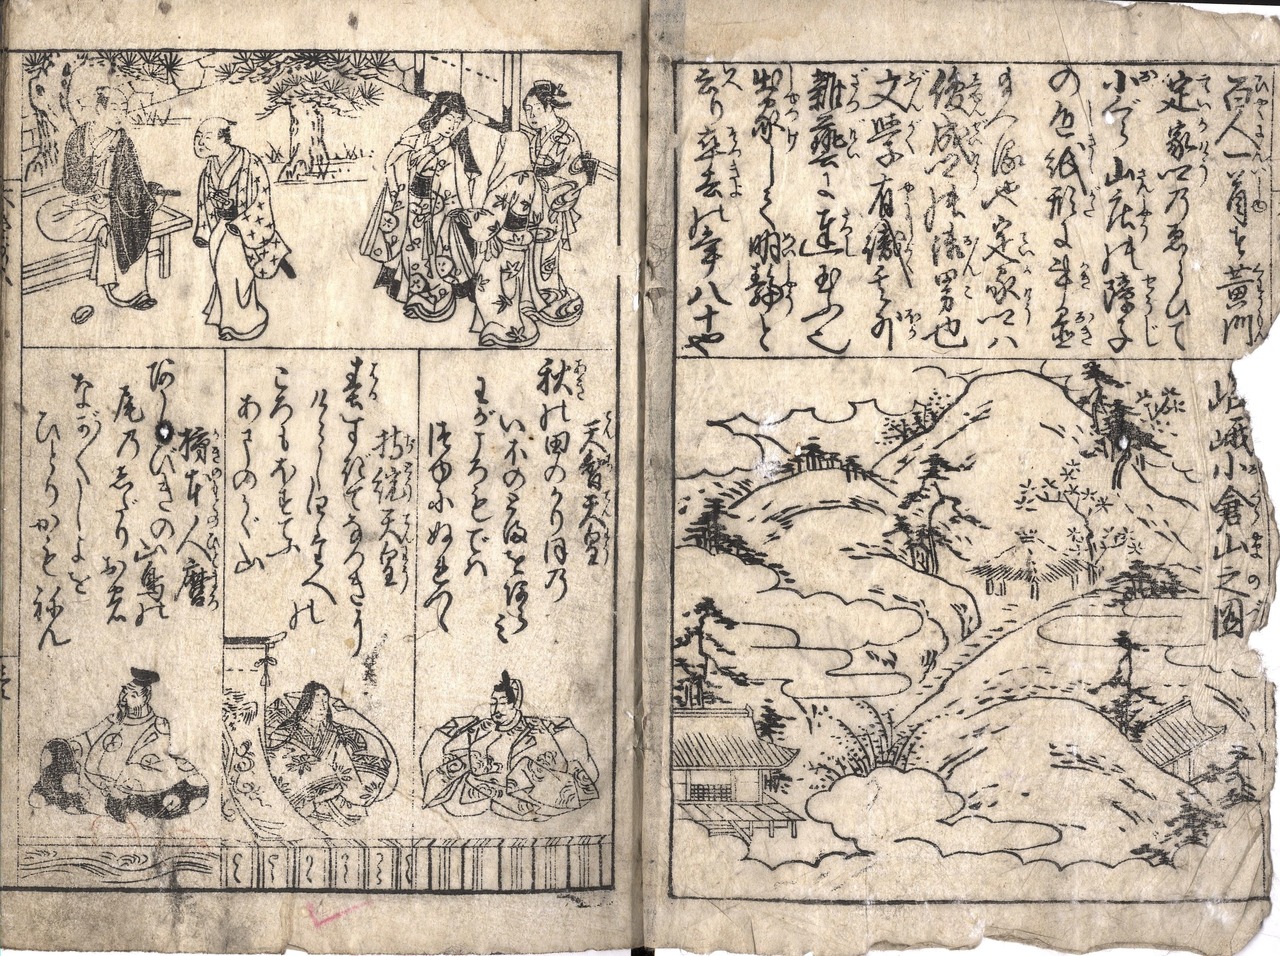 百人一首は黄門
定家卿乃ゑらひて
小ぐら山庄の障子
の色紙形に書置
給ふ〻也定家卿ハ
俊成卿の御男也
文学有識其外
雑藝に達し玉ふ
出家して明静と
云り卒去の年八十や
嵯峨小倉山之図
天智天皇
秋の田のかりほの
いほのとまをあらみ
わがころもでハ
つゆにぬれつゝ
持統天皇
春すぎてなつきに
けらし白たへの
ころもほすてふ
あまのかぐ山
柿本人麿
あしびきの山鳥の
尾乃しだりおの
なが〳〵しよを
ひとりかもねん